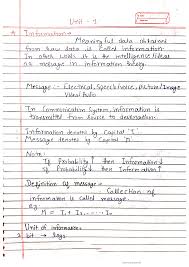 Unit - 1
* Information :-
Meaningful data obtained
from raw data is called Information.
In other words it is the intelligence/ideas
or message in information theory.
Message :- Electrical, Speech/voice, Picture/Image
Video/Audio
In Communication System, information is
transmitted from source to destination.
Information denoted by Capital 'I'
Message denoted by Capital 'M'
Note :
If Probability↑ then Information↓
If Probability↓ then Information↑
Definition of message :- Collection of
information is called message.
eg:-
M = I₁ + I₂ ......
Unit of information
bit →